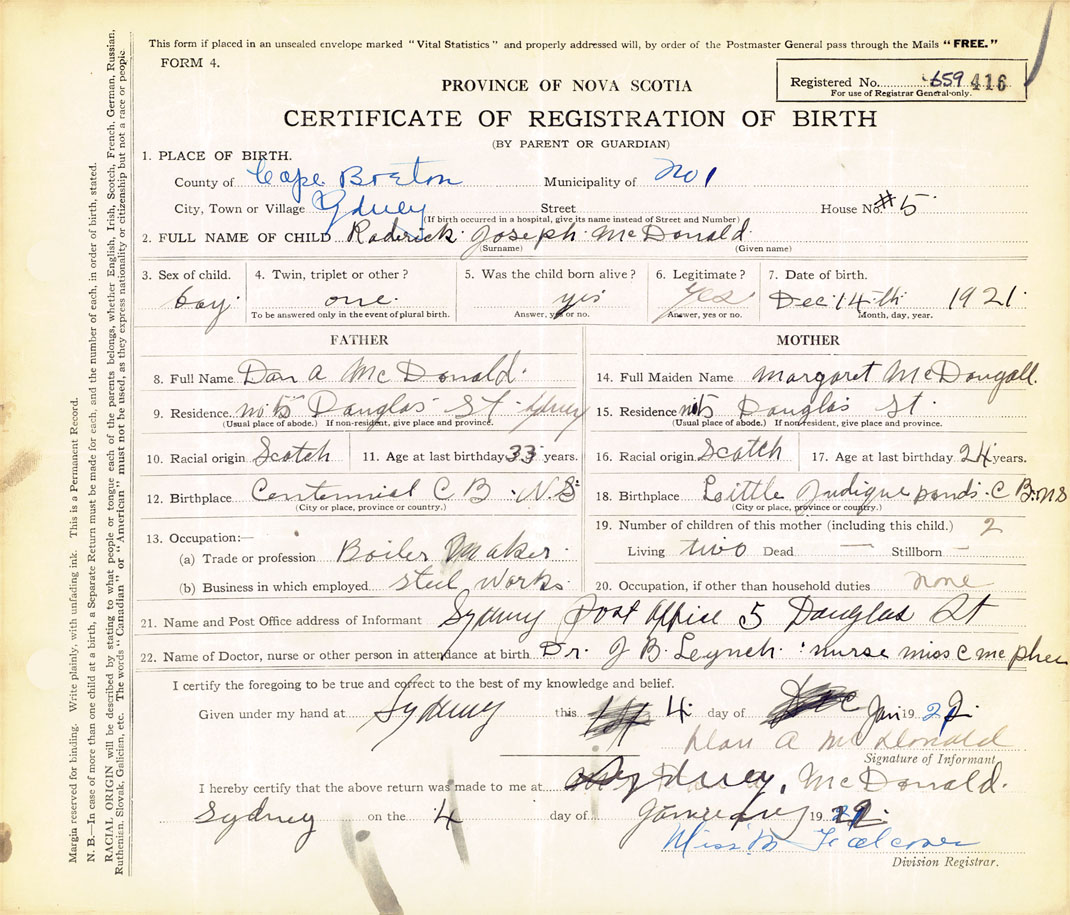 This form if placed in an unsealed envelope marked "Vital Statistics" and properly addressed will, by order of the Postmaster General pass through the Mails "FREE."
FORM 4.
Registered No. 659 416
For use of Registrar General only.
PROVINCE OF NOVA SCOTIA
CERTIFICATE OF REGISTRATION OF BIRTH
(BY PARENT OR GUARDIAN)
1. PLACE OF BIRTH.
County of Cape Breton Municipality of No 1
City, Town or Village Sydney Street House No. #5
(If birth occurred in a hospital, give its name instead of Street and Number)
2. FULL NAME OF CHILD Roderick Joseph McDonald
(Surname) (Given name)
3. Sex of child. 4. Twin, triplet or other? 5. Was the child born alive? 6. Legitimate? 7. Date of birth.
boy one yis Yes Dec 14th 1921
To be answered only in the event of plural birth. Answer, yes or no. Answer, yes or no. Month, day, year.
FATHER
8. Full Name Dan A McDonald
9. Residence no 5 Douglas St Sydney
(Usual place of abode.) If non-resident, give place and province.
10. Racial origin Scotch 11. Age at last birthday 33 years.
12. Birthplace Centennial C B N.S
(City or place, province or country.)
13. Occupation:—
(a) Trade or profession Boiler Maker
(b) Business in which employed steel works
MOTHER
14. Full Maiden Name Margaret McDougall
15. Residence no 5 Douglas St.
(Usual place of abode.) If non-resident, give place and province.
16. Racial origin Scotch 17. Age at last birthday 24 years.
18. Birthplace Little Judique ponds C B N S
(City or place, province or country.)
19. Number of children of this mother (including this child.) 2
Living two Dead — Stillborn –
20. Occupation, if other than household duties none
21. Name and Post Office address of Informant Sydney Post Office 5 Douglas St
22. Name of Doctor, nurse or other person in attendance at birth Dr. J B Leynch. nurse miss C mc phee
I certify the foregoing to be true and correct to the best of my knowledge and belief.
Given under my hand at Sydney this 4 day of Jan 1922
Dan A McDonald
Signature of Informant
I hereby certify that the above return was made to me at Sydney, McDonald.
Sydney on the 4 day of January 1922
Miss M Falconer
Division Registrar.
Margin reserved for binding. Write plainly, with unfading ink. This is a Permanent Record.
N. B.—In case of more than one child at a birth, a Separate Return must be made for each, and the number of each, in order of birth, stated.
RACIAL ORIGIN will be described by stating to what people or tongue each of the parents belongs, whether English, Irish, Scotch, French, German, Russian,
Ruthenian, Slovak, Galician, etc. The words "Canadian" or "American" must not be used, as they express nationality or citizenship but not a race or people